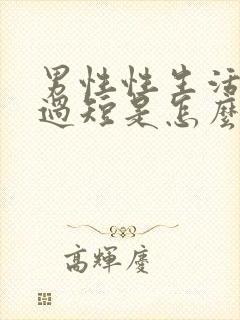 男性性生活
過短是怎麼
高輝慶